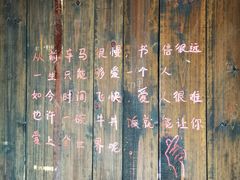 从前车马很慢,书信很远
一生只能够爱一个人
如今时间飞快 爱人很难
也许一碗牛丼饭就能让你
爱上全世界呢